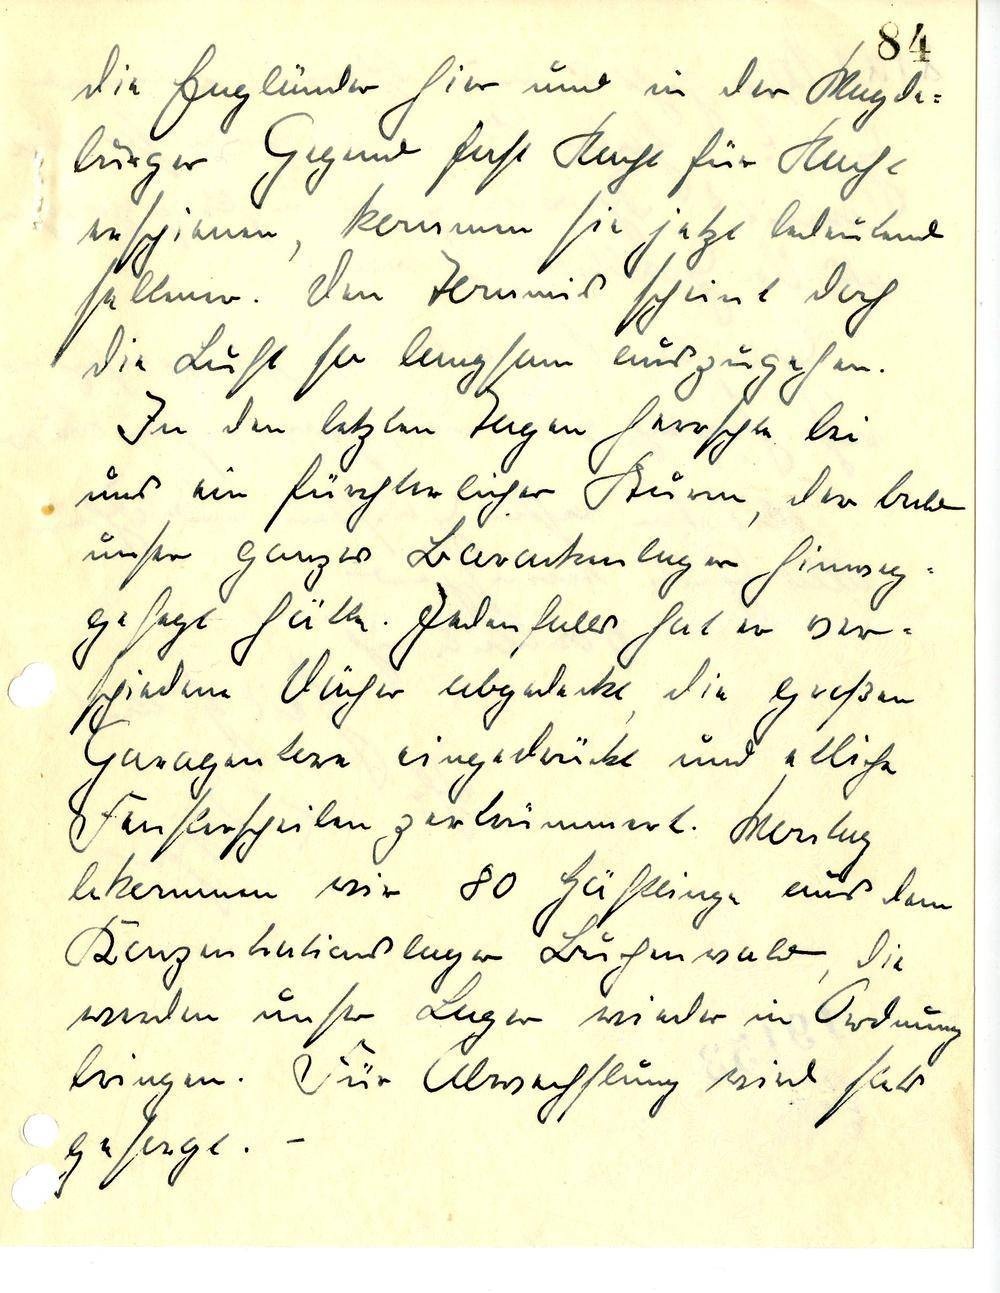 84
die Engländer hier und in der Magde=
burger Gegend fast Nacht für Nacht
erschienen, kommen sie jetzt bedeutend
seltener. Den Tommis scheint doch
die Luft so langsam auszugehen.
In den letzten Tagen herrschte bei
uns ein fürchterlicher Sturm, der bald
unser ganzes Barackenlager hinweg-
gefegt hätte. Jedenfalls hat er ver-
schiedene Dächer abgedeckt, die großen
Garagentore eingedrückt und etliche
Fensterscheiben zertrümmert. Montag
bekommen wir 80 Häftlinge aus dem
Konzentrationslager Buchenwald, die
werden unser Lager wieder in Ordnung
bringen. Für Abwechslung wird stets
gesorgt. –